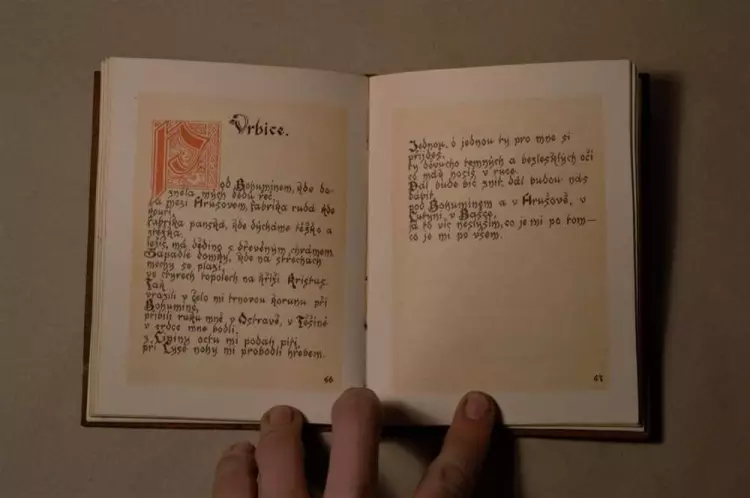 Vrbice.
Pod Bohumínem, kde do-
zněla mých dědů řeč,
a mezi Hrušovem, fabrika rudá kde
kouří,
fabrika panská, kde dýcháme těžko a
ztěžka,
ležíš, má dědino s dřevěným chrámem.
Zapadlé domky, kde na střechách
mechy se plazí,
ve čtyrech topolech na kříži Kristus.
Tak
vrazili v čelo mi trnovou korunu při
Bohumíně,
přibili ruku mně v Ostravě, v Těšíně
v srdce mne bodli,
z Lipiny octu mi podali píti,
při Lysé nohy mi probodli hřebem.
66
Jednou, ó jednou ty pro mne si
přijdeš,
ty děvucho temných a bezlesklých očí
co mák nosíš v ruce.
Dál bude bič znít, dál budou nás
dávit,
pod Bohumínem a v Hrušově, v
Lutyni, v Bašce,
a to víc neslyším, co je mi po tom—
co je mi po všem.
67